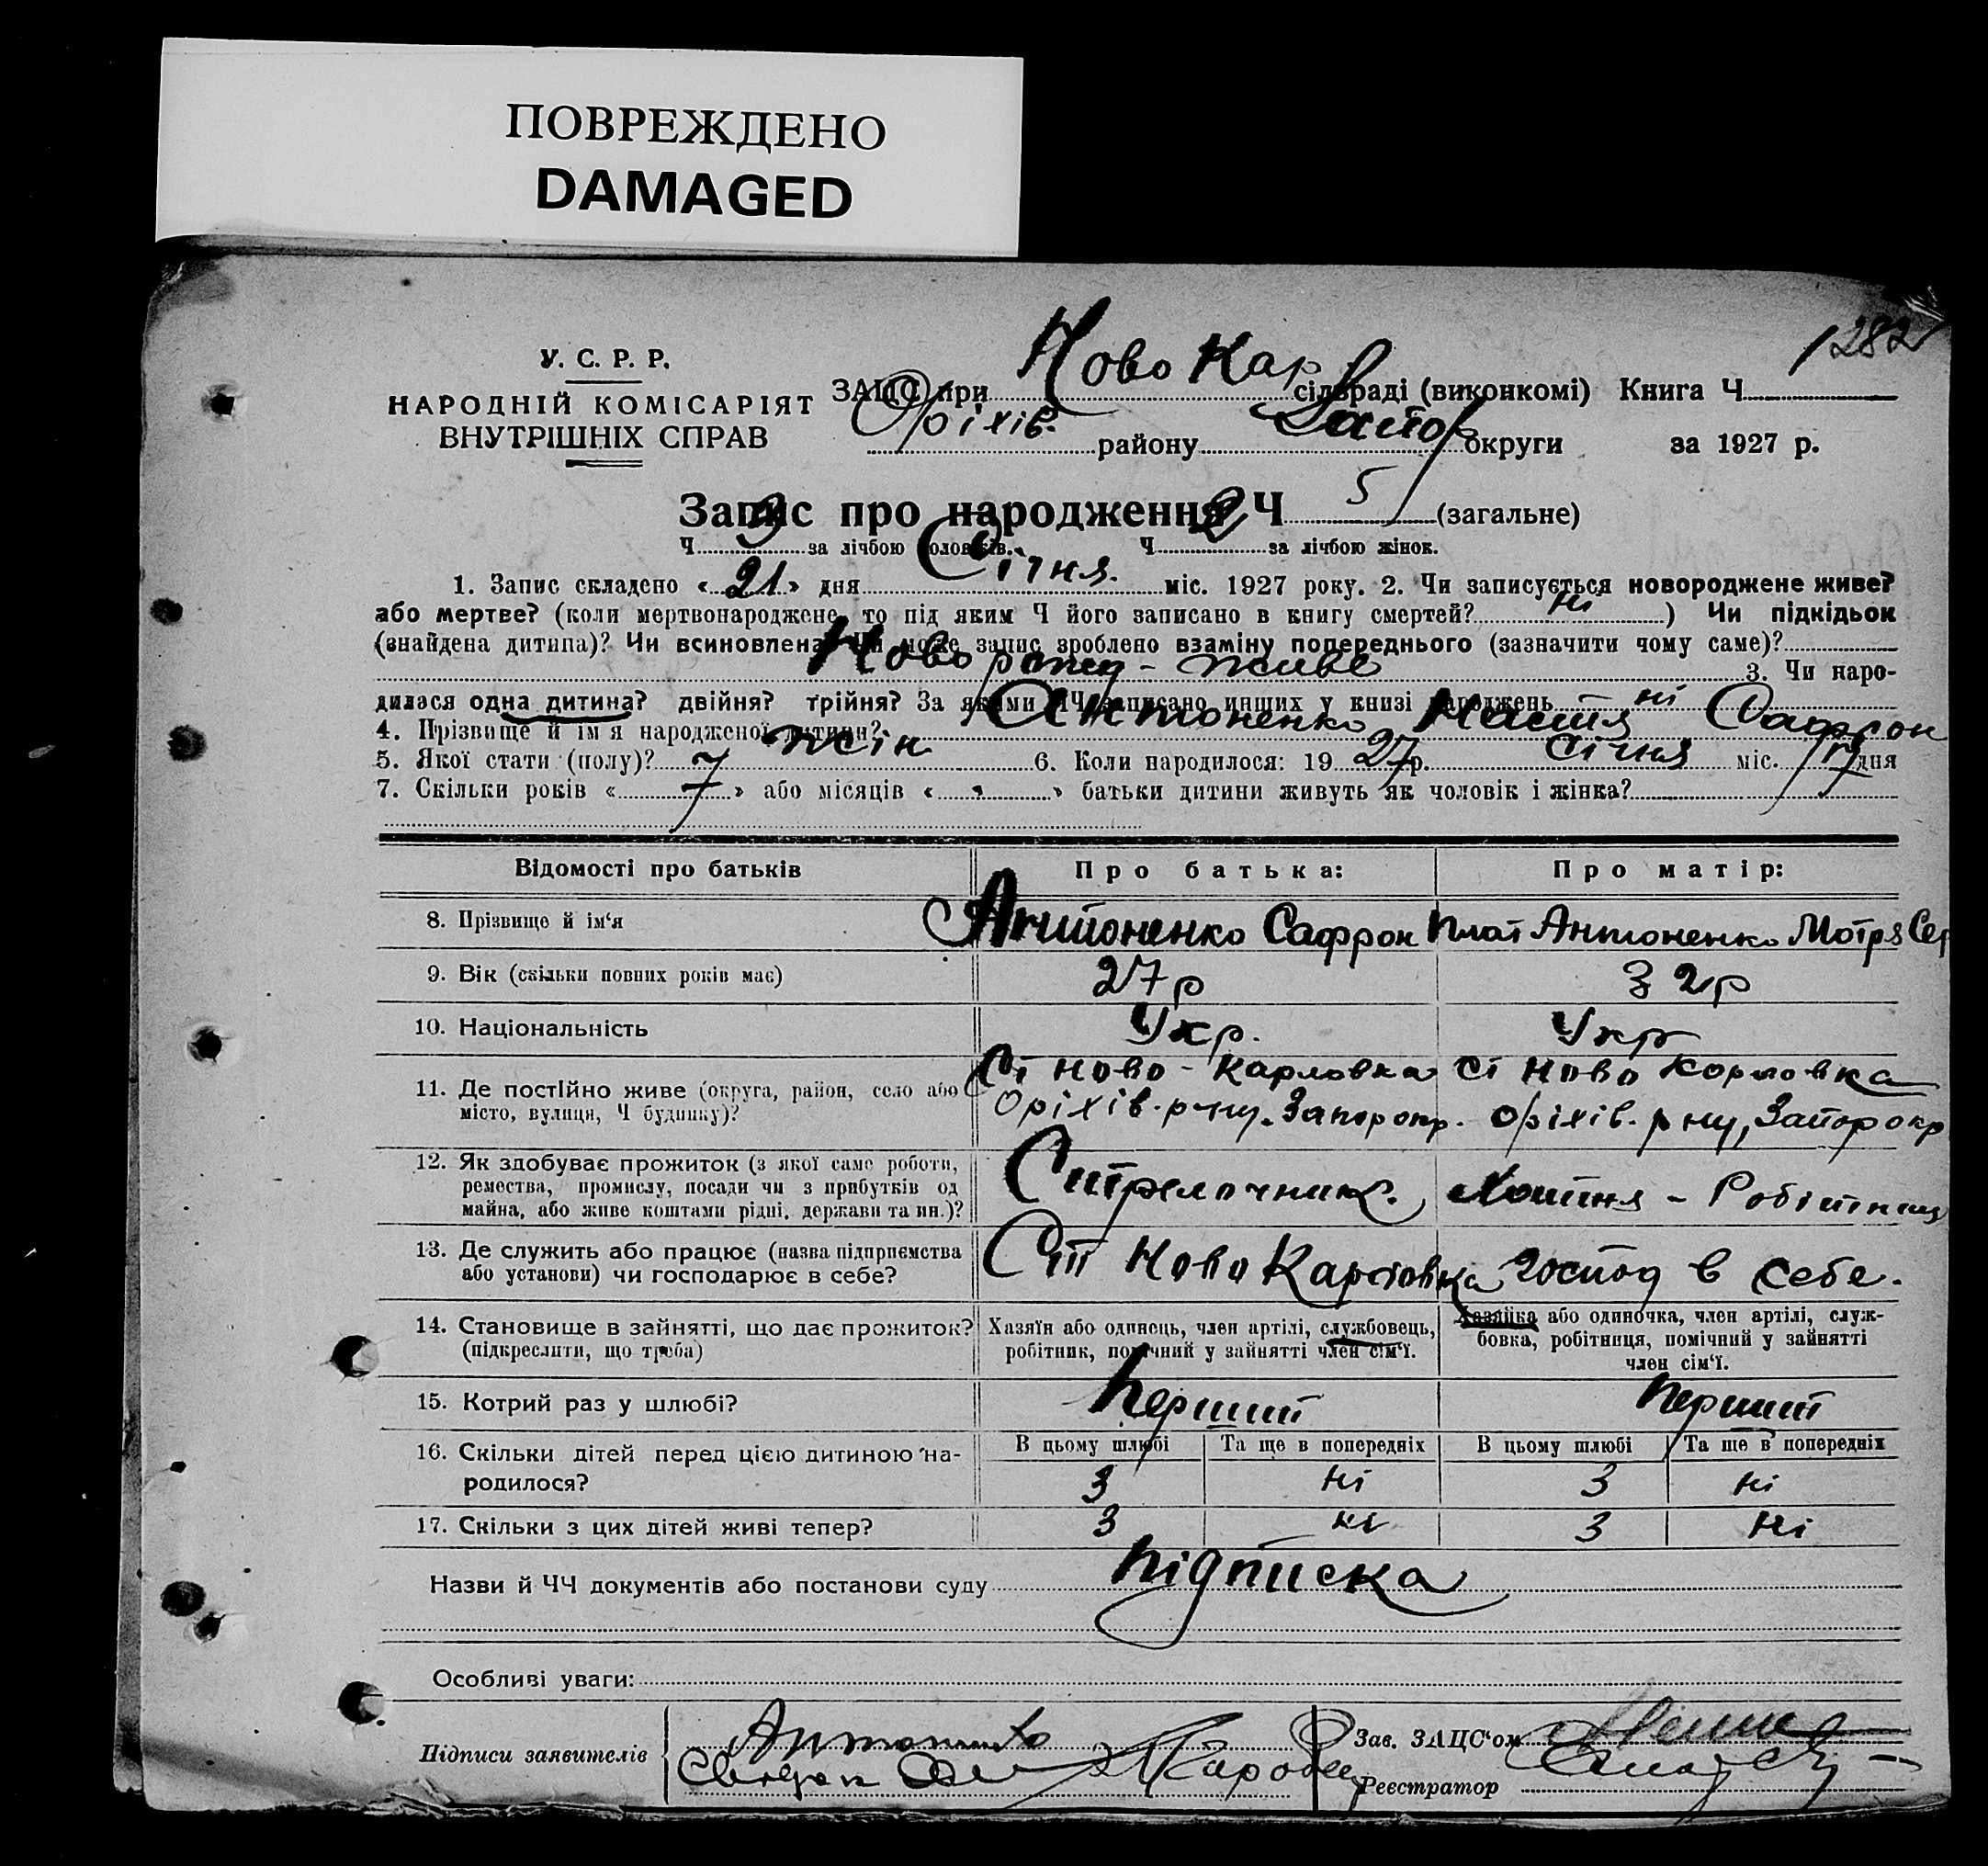 ПОВРЕЖДЕНО
DAMAGED
1282
У. С. Р. Р.
НАРОДНІЙ КОМІСАРІЯТ
ВНУТРІШНІХ СПРАВ
ЗАЦС при Ново Кар сільраді (виконкомі) Книга Ч
Оріхів. району Запор округи за 1927 р.
Запис про народження Ч 5 (загальне)
Ч 3 за лічбою чоловіків. Ч 2 за лічбою жінок.
1. Запис складено «21» дня Січня. міс. 1927 року. 2. Чи записується новороджене живе?
або мертве? (коли мертвонароджене, то під яким Ч його записано в книгу смертей? ні ) Чи підкідьок
(знайдена дитина)? Чи всиновлена? Чи може запис зроблено взаміну попереднього (зазначити чому саме)?
Новорожд - живе 3. Чи наро-
дилася одна дитина? двійня? трійня? За якими ЧЧ записано инших у книзі народжень ні
4. Прізвище й ім'я народженої дитини? Антоненко Настя Сафрон
5. Якої стати (полу)? жін 6. Коли народилося: 19 27 р. Січня міс. 19 дня
7. Скільки років « 7 » або місяців « » батьки дитини живуть як чоловік і жінка?
Відомості про батьків Про батька: Про матір:
8. Прізвище й ім'я Антоненко Сафрон Плат Антоненко Мотря Сер
9. Вік (скільки повних років має) 27 р 32 р
10. Національність Укр. Укр
11. Де постійно живе (округа, район, село або Ст Ново-Карловка Ст Ново Корловка
місто, вулиця, Ч будинку)? Оріхів. р-ну. Запорокр. Оріхів. р ну, Запорокр
12. Як здобуває прожиток (з якої саме роботи,
ремества, промислу, посади чи з прибутків од Стрелочник. Хатня - Робітниця
майна, або живе коштами рідні, держави та ин.)?
13. Де служить або працює (назва підприємства Ст Ново Карловка Господ в себе.
або установи) чи господарює в себе?
14. Становище в зайнятті, що дає прожиток? Хазяїн або одинець, член артілі, службовець, Хазяйка або одиночка, член артілі, служ-
(підкреслити, що треба) робітник, помічний у зайнятті член сім'ї. бовка, робітниця, помічний у зайнятті
член сім'ї.
15. Котрий раз у шлюбі? Перший Перший
16. Скільки дітей перед цією дитиною на- В цьому шлюбі Та ще в попередніх В цьому шлюбі Та ще в попередніх
родилося? 3 ні 3 ні
17. Скільки з цих дітей живі тепер? 3 ні 3 ні
Назви й ЧЧ документів або постанови суду Підписка
Особливі уваги:
Підписи заявителів Антоненко Зав. ЗАЦС'ом
Реєстратор